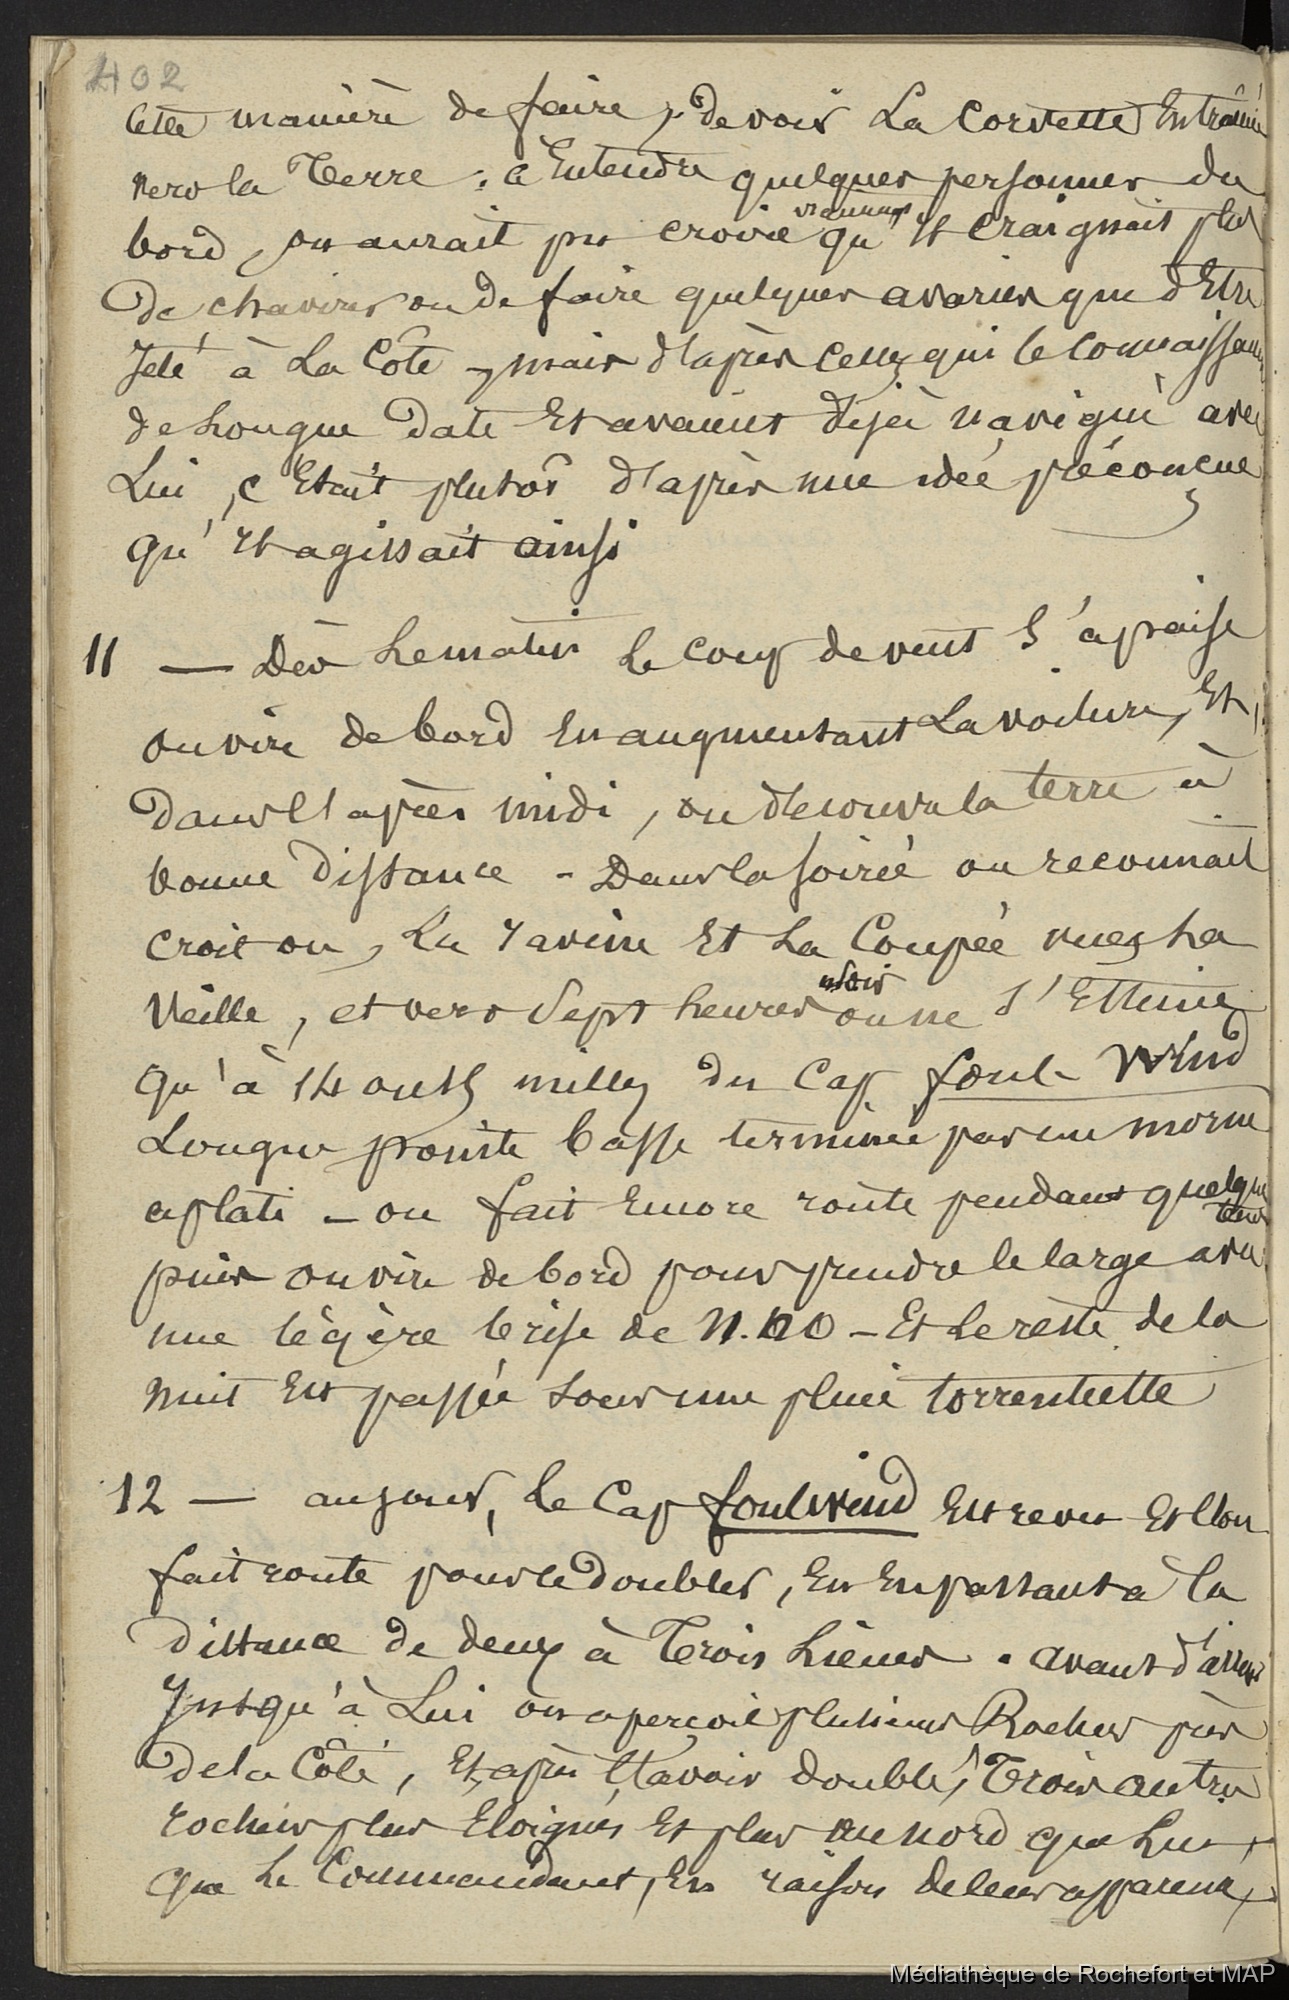 402
Cette manière de faire, de voir La Corvette Entrainée
vers la Terre : à Entendre quelques personnes du
bord, on aurait pu croire vraiment qu'il craignait plus
De chavirer ou de faire quelques avaries que d'Etre
Jeté à La Côte, mais d'après ceux qui le connaissaient
de Longue Date Et avaient déjà navigué avec
Lui, c'Etait plutôt d'après une idée préconçue
qu'il agissait ainsi
11 — Dès Le matin Le coup de vent S'apaise
on vire de bord En augmentant La voilure, Et,
Dans l'après midi, on découvre la terre à
bonne Distance - Dans la soirée on reconnait
croit on, La ravine Et La Coupée vues La
Veille, et vers Sept heures du soir on ne S'Estime
qu'à 14 ou 15 milles du Cap foul-Wind
Longue pointe basse terminée par un morne
aplati - on fait Encore route pendant quelque tems
puis on vire de bord pour prendre le large avec
une légère brise de N.NO - Et Le reste de la
nuit Est passée sous une pluie torrentielle
12 — au jour, Le Cap foulwind Est revu Et l'on
fait route pour le Doubler, En En passant à la
Distance de deux à Trois Lieues. avant d'arriver
Jusqu'à Lui on aperçoit plusieurs Rochers près
de la Côte, Et, après l'avoir doublé, Trois autres
rochers plus Eloignés Et plus au nord que Lui,
que Le Commandant, En raison de leur apparence,
Médiathèque de Rochefort et MAP